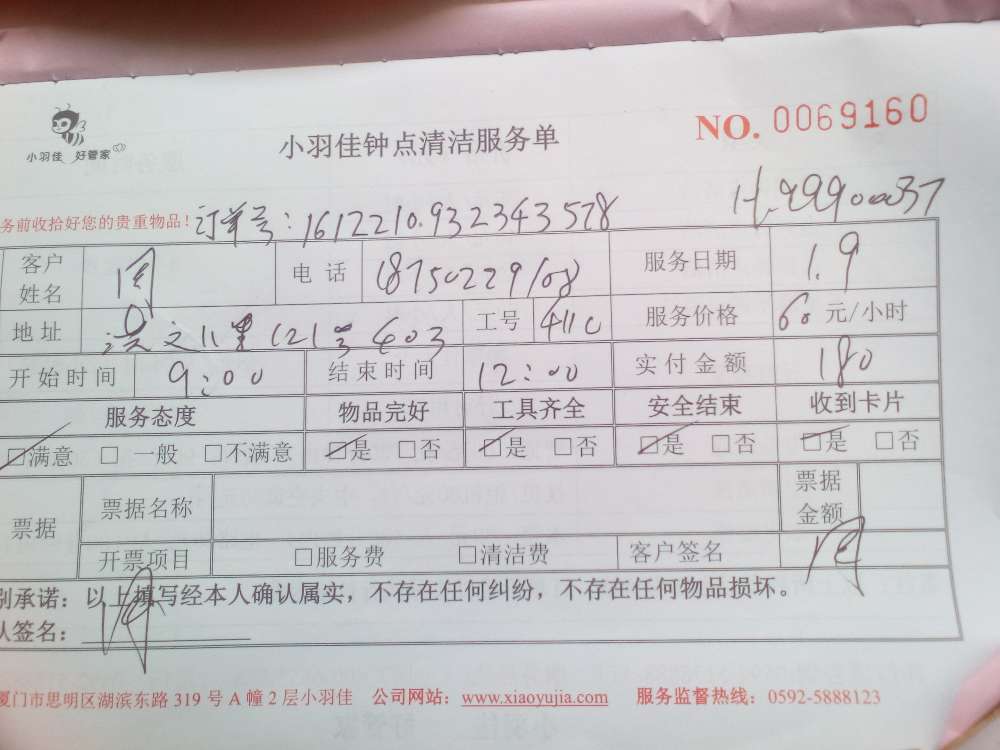 小羽佳 好管家
小羽佳钟点清洁服务单
NO. 0069160
务前收拾好您的贵重物品！
订单号：1612210932343578
客户姓名 周 电话 18750229108 服务日期 1.9
地址 里121号603 工号 服务价格 60 元/小时
开始时间 9:00 结束时间 12:00 实付金额 180
服务态度 物品完好 工具齐全 安全结束 收到卡片
☑满意 □ 一般 □不满意 ☑是 □否 ☑是 □否 ☑是 □否 ☑是 □否
票据 票据名称 票据金额
开票项目 □服务费 □清洁费 客户签名 周
别承诺：以上填写经本人确认属实，不存在任何纠纷，不存在任何物品损坏。
认签名： 周
厦门市思明区湖滨东路 319 号 A 幢 2 层小羽佳 公司网站：www.xiaoyujia.com 服务监督热线：0592-5888123